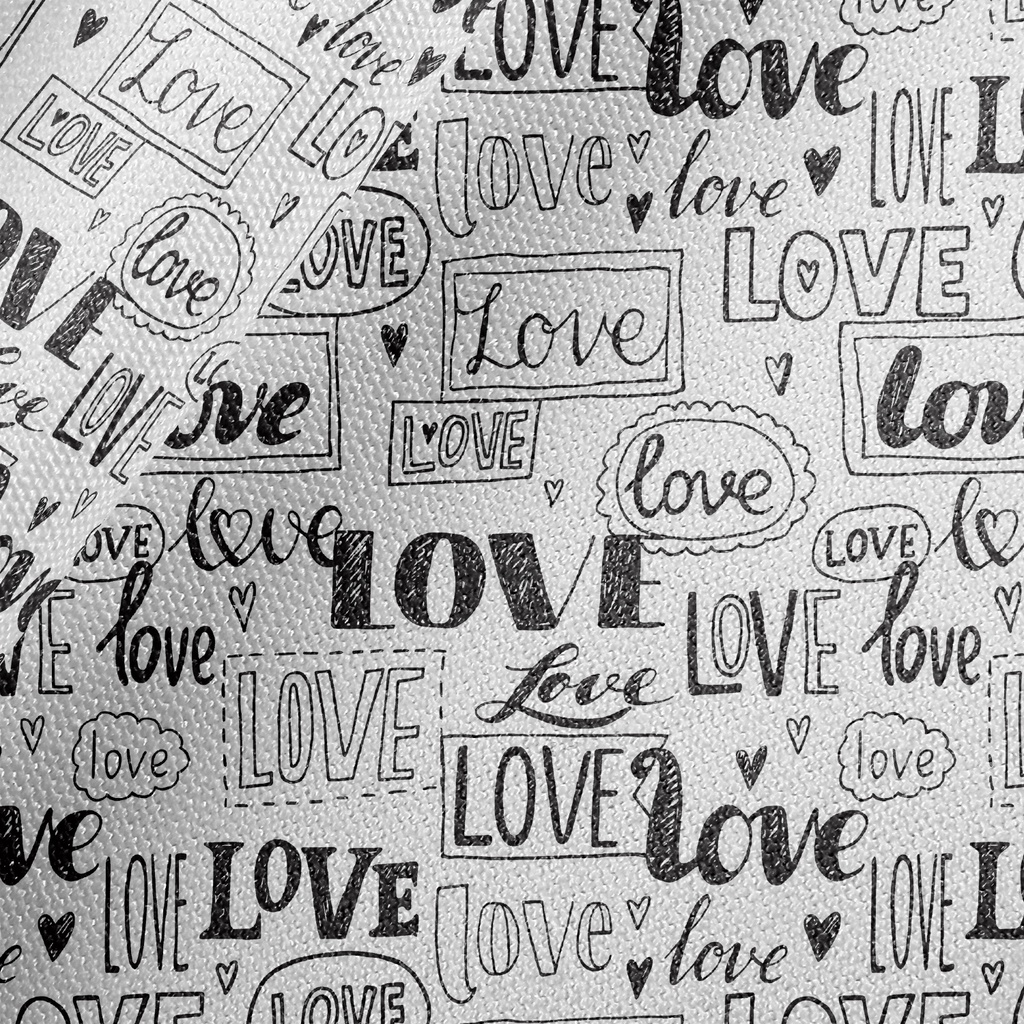 love
LOVE
love
Love
love
LOVE
LOVE
love
love
LOVE
love
LOVE
LOVE
Love
LOVE
love
love
LOVE
love
LOVE
LOVE
love
LOVE
love
LOVE
LOVE
love
Love
LOVE
love
LOVE
love
love
LOVE
love
LOVE
LOVE
love
love
LOVE
LOVE
LOVE